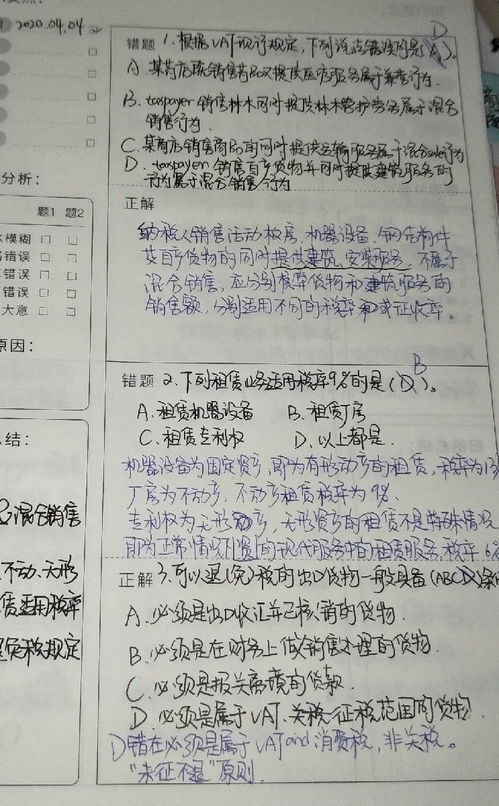 2020.04.04
D
错题 1.根据VAT现行规定，下列说法错误的是(A)。
A.某药店既销售药品又提供医疗服务属于兼营行为.
B.taxpayer 销售林木同时提供林木管护劳务属于混合
销售行为.
C.某商店销售商品的同时提供运输服务属于混合sale行为
D.taxpayer 销售自产货物并同时提供建筑服务的
行为属于混合销售行为
分析：
正解
纳税人销售活动板房、机器设备、钢结构件
等自产货物的同时提供建筑、安装服务，不属于
混合销售，应分别核算货物和建筑服务的
销售额，分别适用不同的税率或征收率。
题1 题2
模糊
错误
错误
错误
大意
原因：
B
错题 2.下列租赁业务适用税率9%的是(D)。
A.租赁机器设备 B.租赁厂房
C.租赁专利权 D.以上都是.
结：
机器设备为固定资产，即为有形动产的租赁，税率为13
厂房为不动产，不动产租赁税率为9%.
专利权为无形资产，无形资产的租赁不是特殊情况
即为正常情况下的现代服务中的租赁服务，税率6%
混合销售
不动、无形
适用税率
税规定
正解 3.可以退(免)税的出口货物一般具备(ABCD)条件
A.必须是出口收汇并已核销的货物.
B.必须是在财务上做销售处理的货物.
C.必须是报关离境的货款.
D.必须是属于VAT、关税征税范围的货物.
D错在必须是属于VAT and 消费税，非关税。
“未征不退”原则.